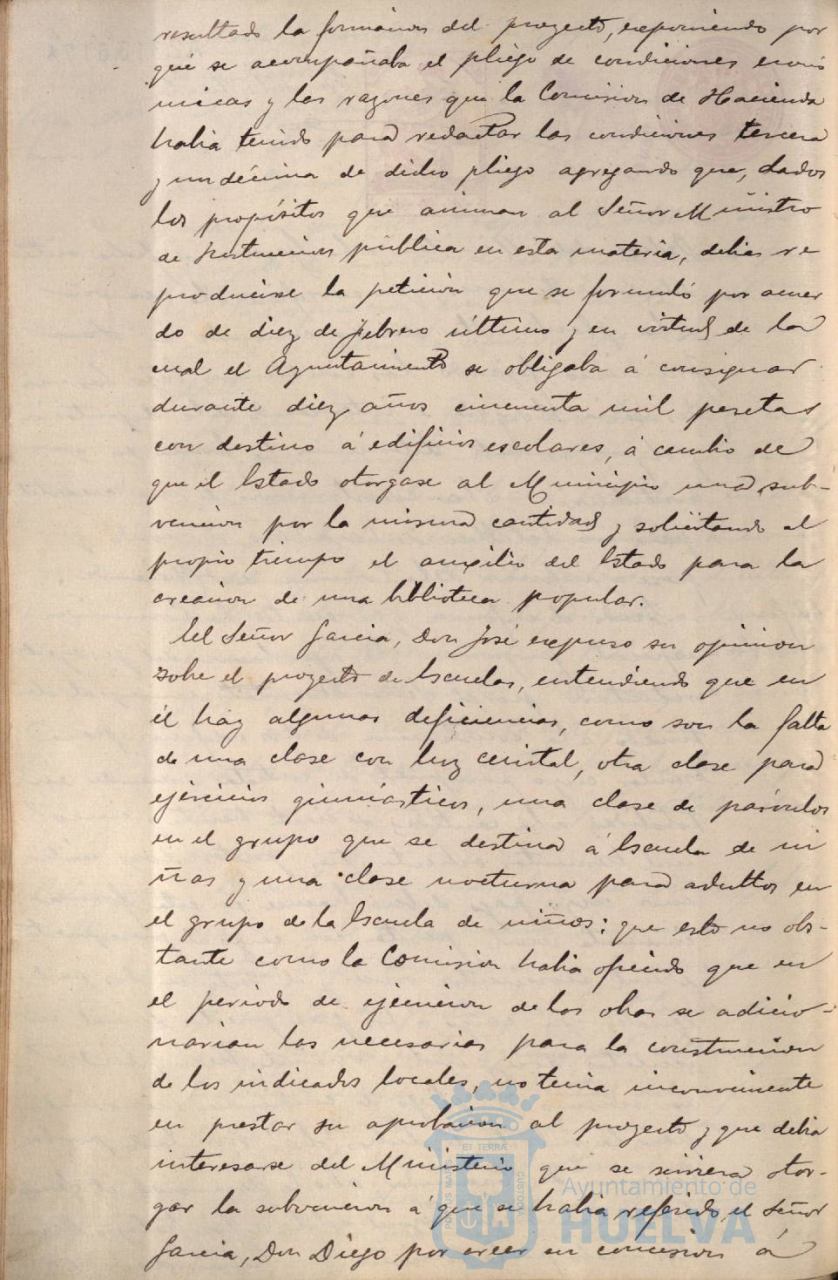 resultado la formacion del proyecto, exponiendo por
qué se acompañaba el pliego de condiciones econó
micas y las razones que la Comision de Hacienda
habia tenido para redactar las condiciones tercera
y undécima de dicho pliego agregando que, dados
los propósitos que animan al Señor Ministro
de Instruccion pública en esta materia, debia re
producirse la peticion que se formuló por acuer
do de diez de febrero último y en virtud de la
cual el Ayuntamiento se obligaba á consignar
durante diez años cincuenta mil pesetas
con destino á edificios escolares, á cambio de
que el Estado otorgase al Municipio una sub-
vencion por la misma cantidad y solicitando al
propio tiempo el auxilio del Estado para la
creacion de una biblioteca popular.
El Señor Garcia, Don José expuso su opinion
sobre el proyecto de Escuelas, entendiendo que en
él hay algunas deficiencias, como son la falta
de una clase con luz cenital, otra clase para
ejercicios gimnásticos, una clase de párvulos
en el grupo que se destina á Escuela de ni
ñas y una clase nocturna para adultos en
el grupo de la Escuela de niños: que esto no obs-
tante como la Comision habia ofrecido que en
el periodo de ejecucion de las obras se adicio-
narian las necesarias para la construccion
de los indicados locales, no tenia inconveniente
en prestar su aprobacion al proyecto y que debia
interesarse del Ministerio que se sirviera otor-
gar la subvencion á que se habia referido el Señor
Garcia, Don Diego por creer su concesion á
ET TERRÆ
CUSTODIA
Ayuntamiento de
HUELVA